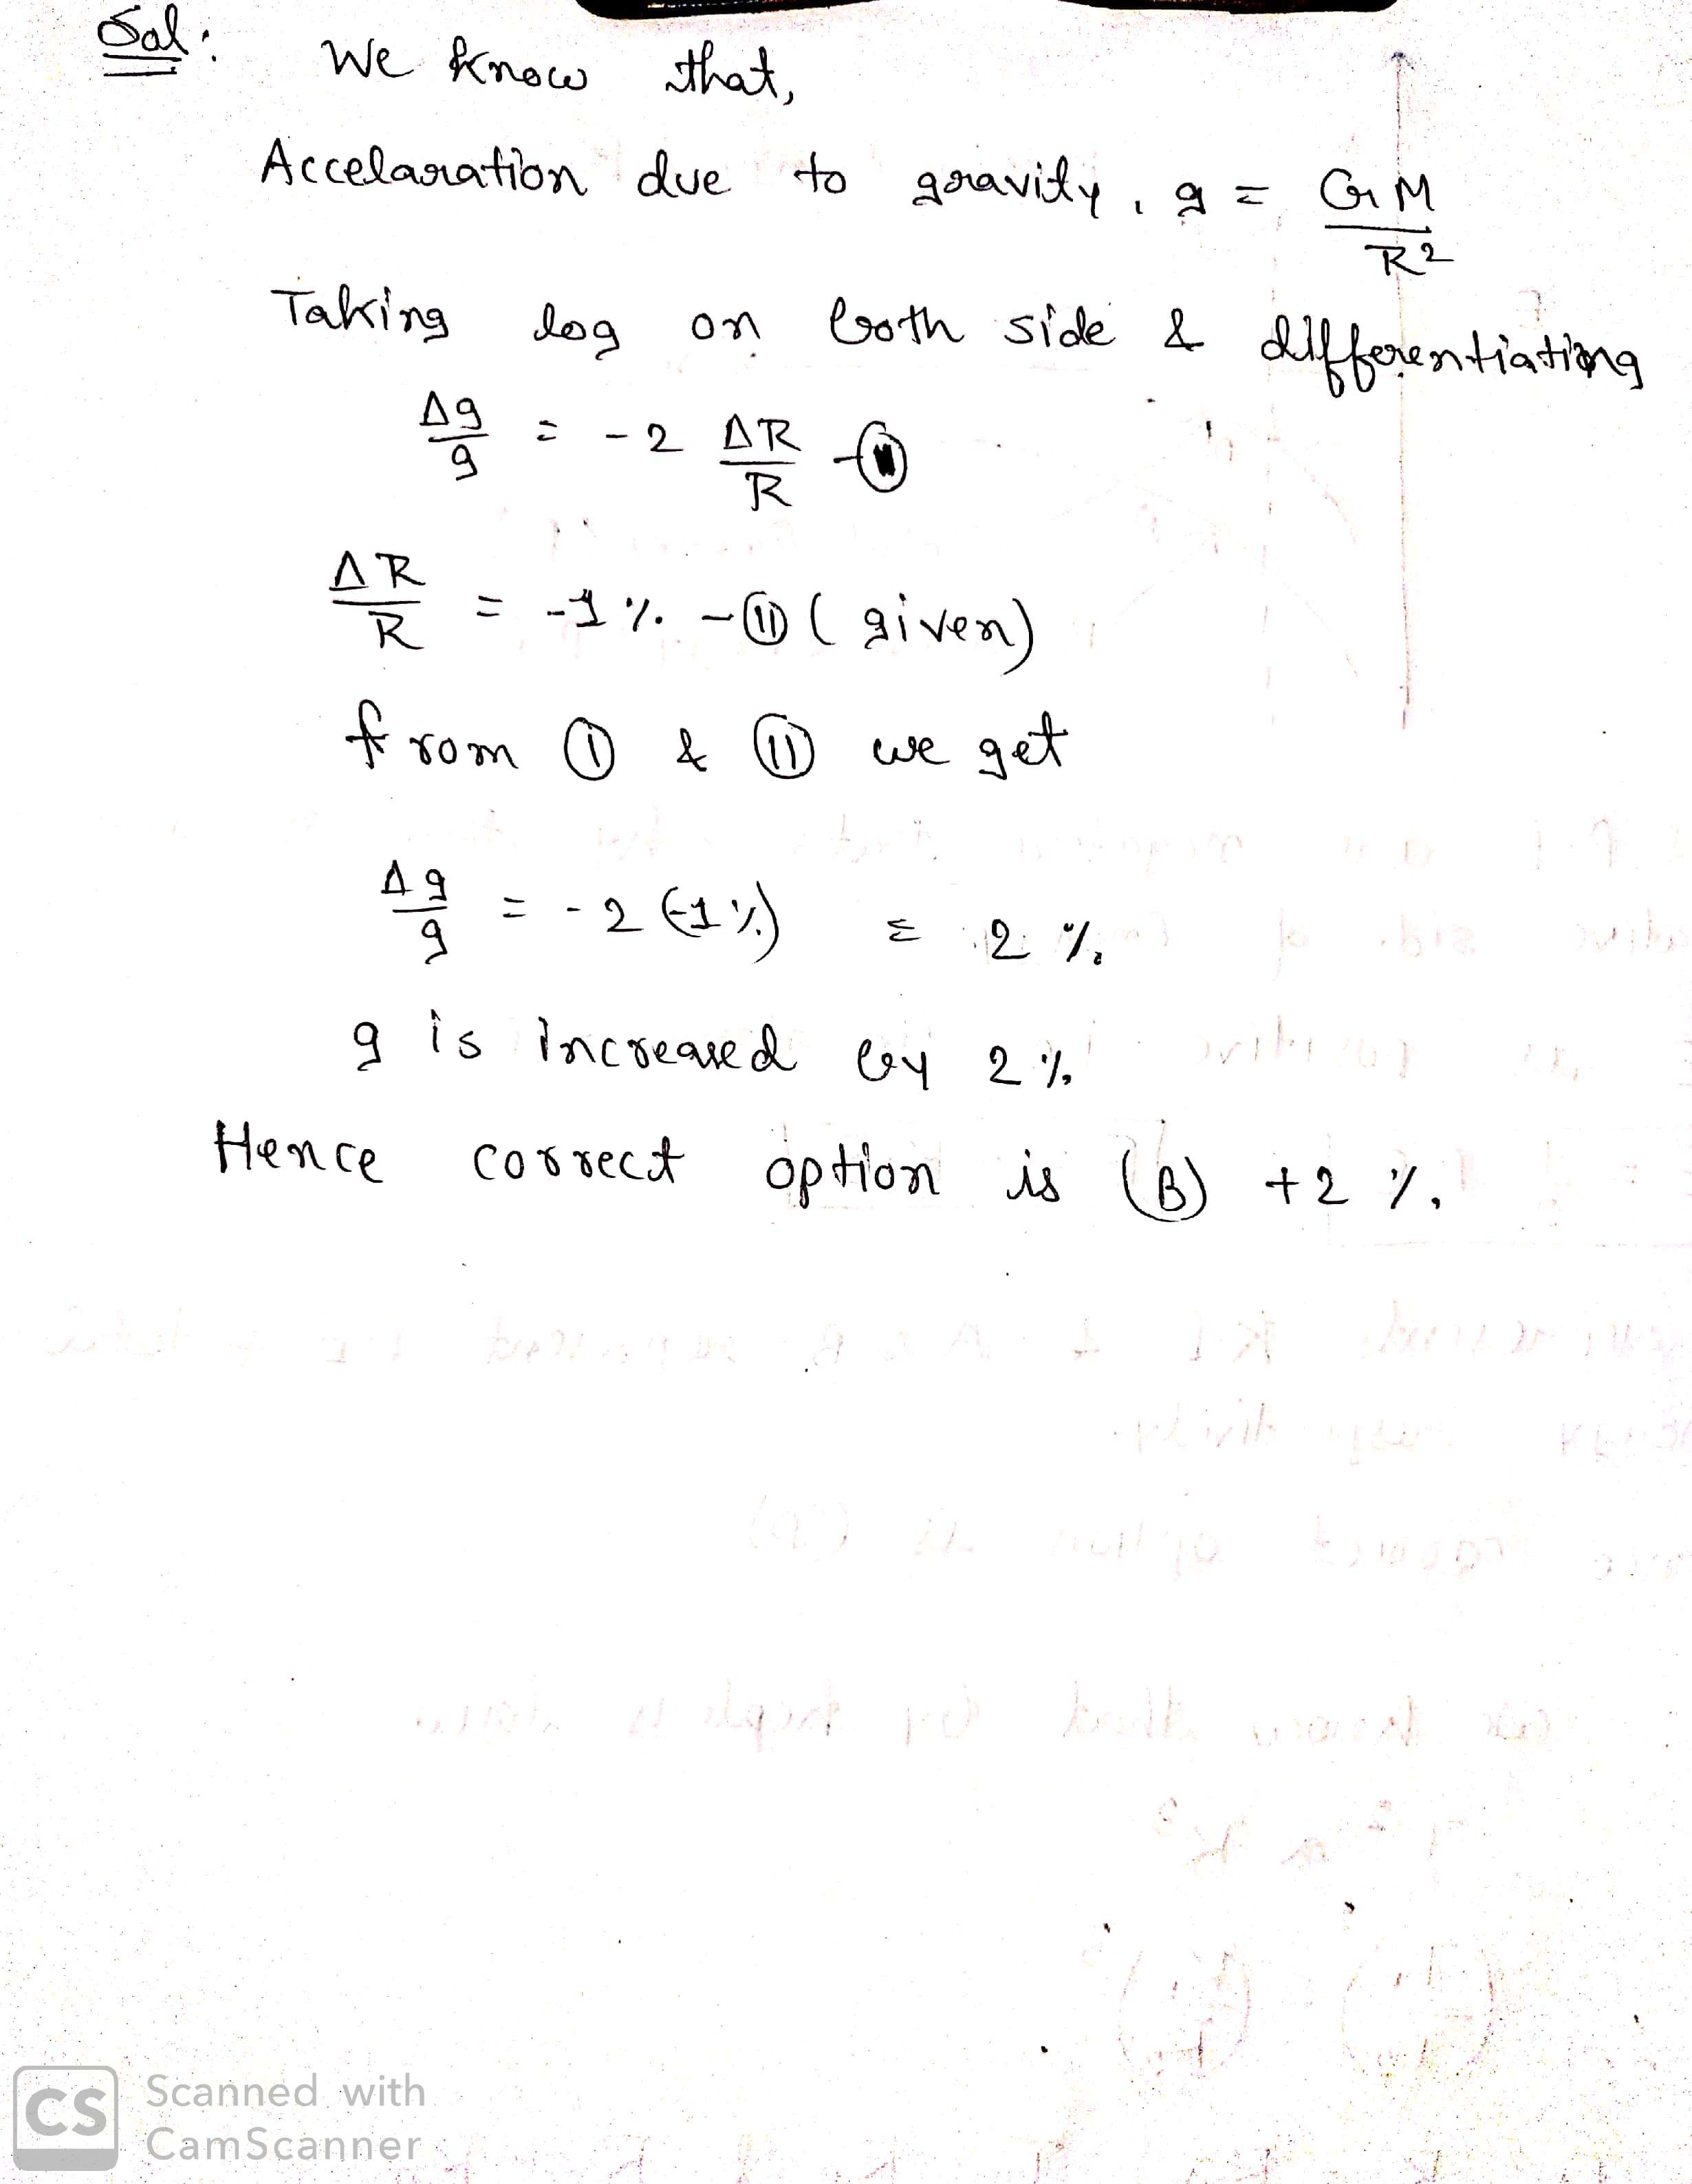 Sol:
We know that,
Accelaration due to gravity, g = GM / R²
Taking log on both side & differentiating
Δg/g = -2 ΔR/R -
ΔR/R = -1 % - (ii) (given)
from (i) & (ii) we get
Δg/g = -2 (-1 %) = 2 %
g is increased by 2 %
Hence correct option is (B) +2 %.
CS Scanned with
CamScanner